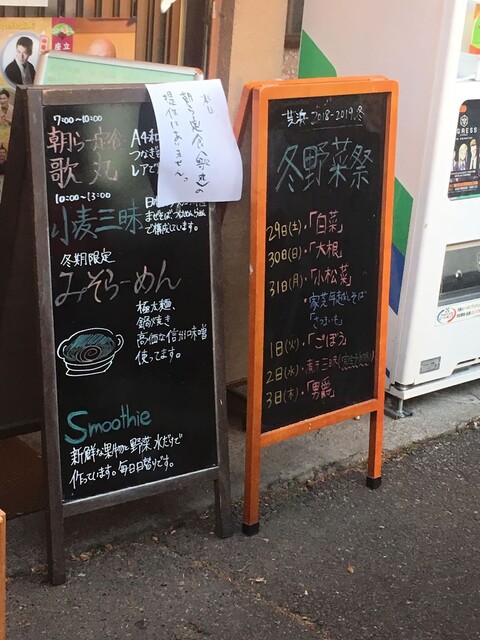 7:00～10:00
朝らー定食
歌丸
A4和
つなぎ
レアで
10:00～13:00
小麦三昧
で構成しています。
冬期限定
みそらーめん
極太麺
鍋焼き
高価な信州味噌
使ってます。
Smoothie
新鮮な果物と野菜、水だけで
作っています。毎日日替りです。
朝らー定食(歌丸)の
提供はありません。
芸浜 2018-2019.冬
冬野菜祭
29日(土)・「白菜」
30日(日)・「大根」
31日(月)・「小松菜」
・家芸年越しそば
「さつまいも」
1日(火)・「ごぼう」
2日(水)・煮干三昧
3日(木)・「男爵」
座立